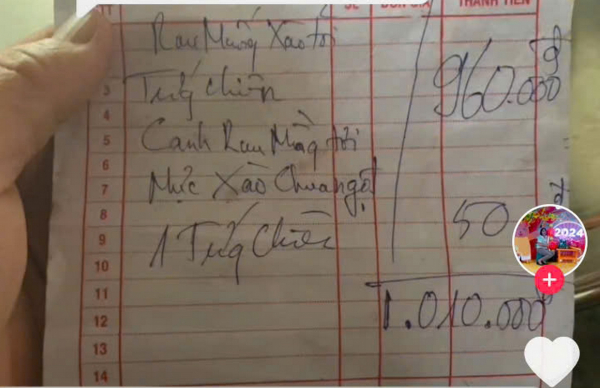 TT SL ĐƠN GIÁ THÀNH TIỀN
Rau Muống Xào tỏi
3 Trứng chiên 960.000đ
4
5 Canh Rau Mồng tơi
6
7 Mực Xào Chua ngọt
8
9 1 Trứng Chiên 50 đ
10
11
12 1.010.000đ
13
14
2024